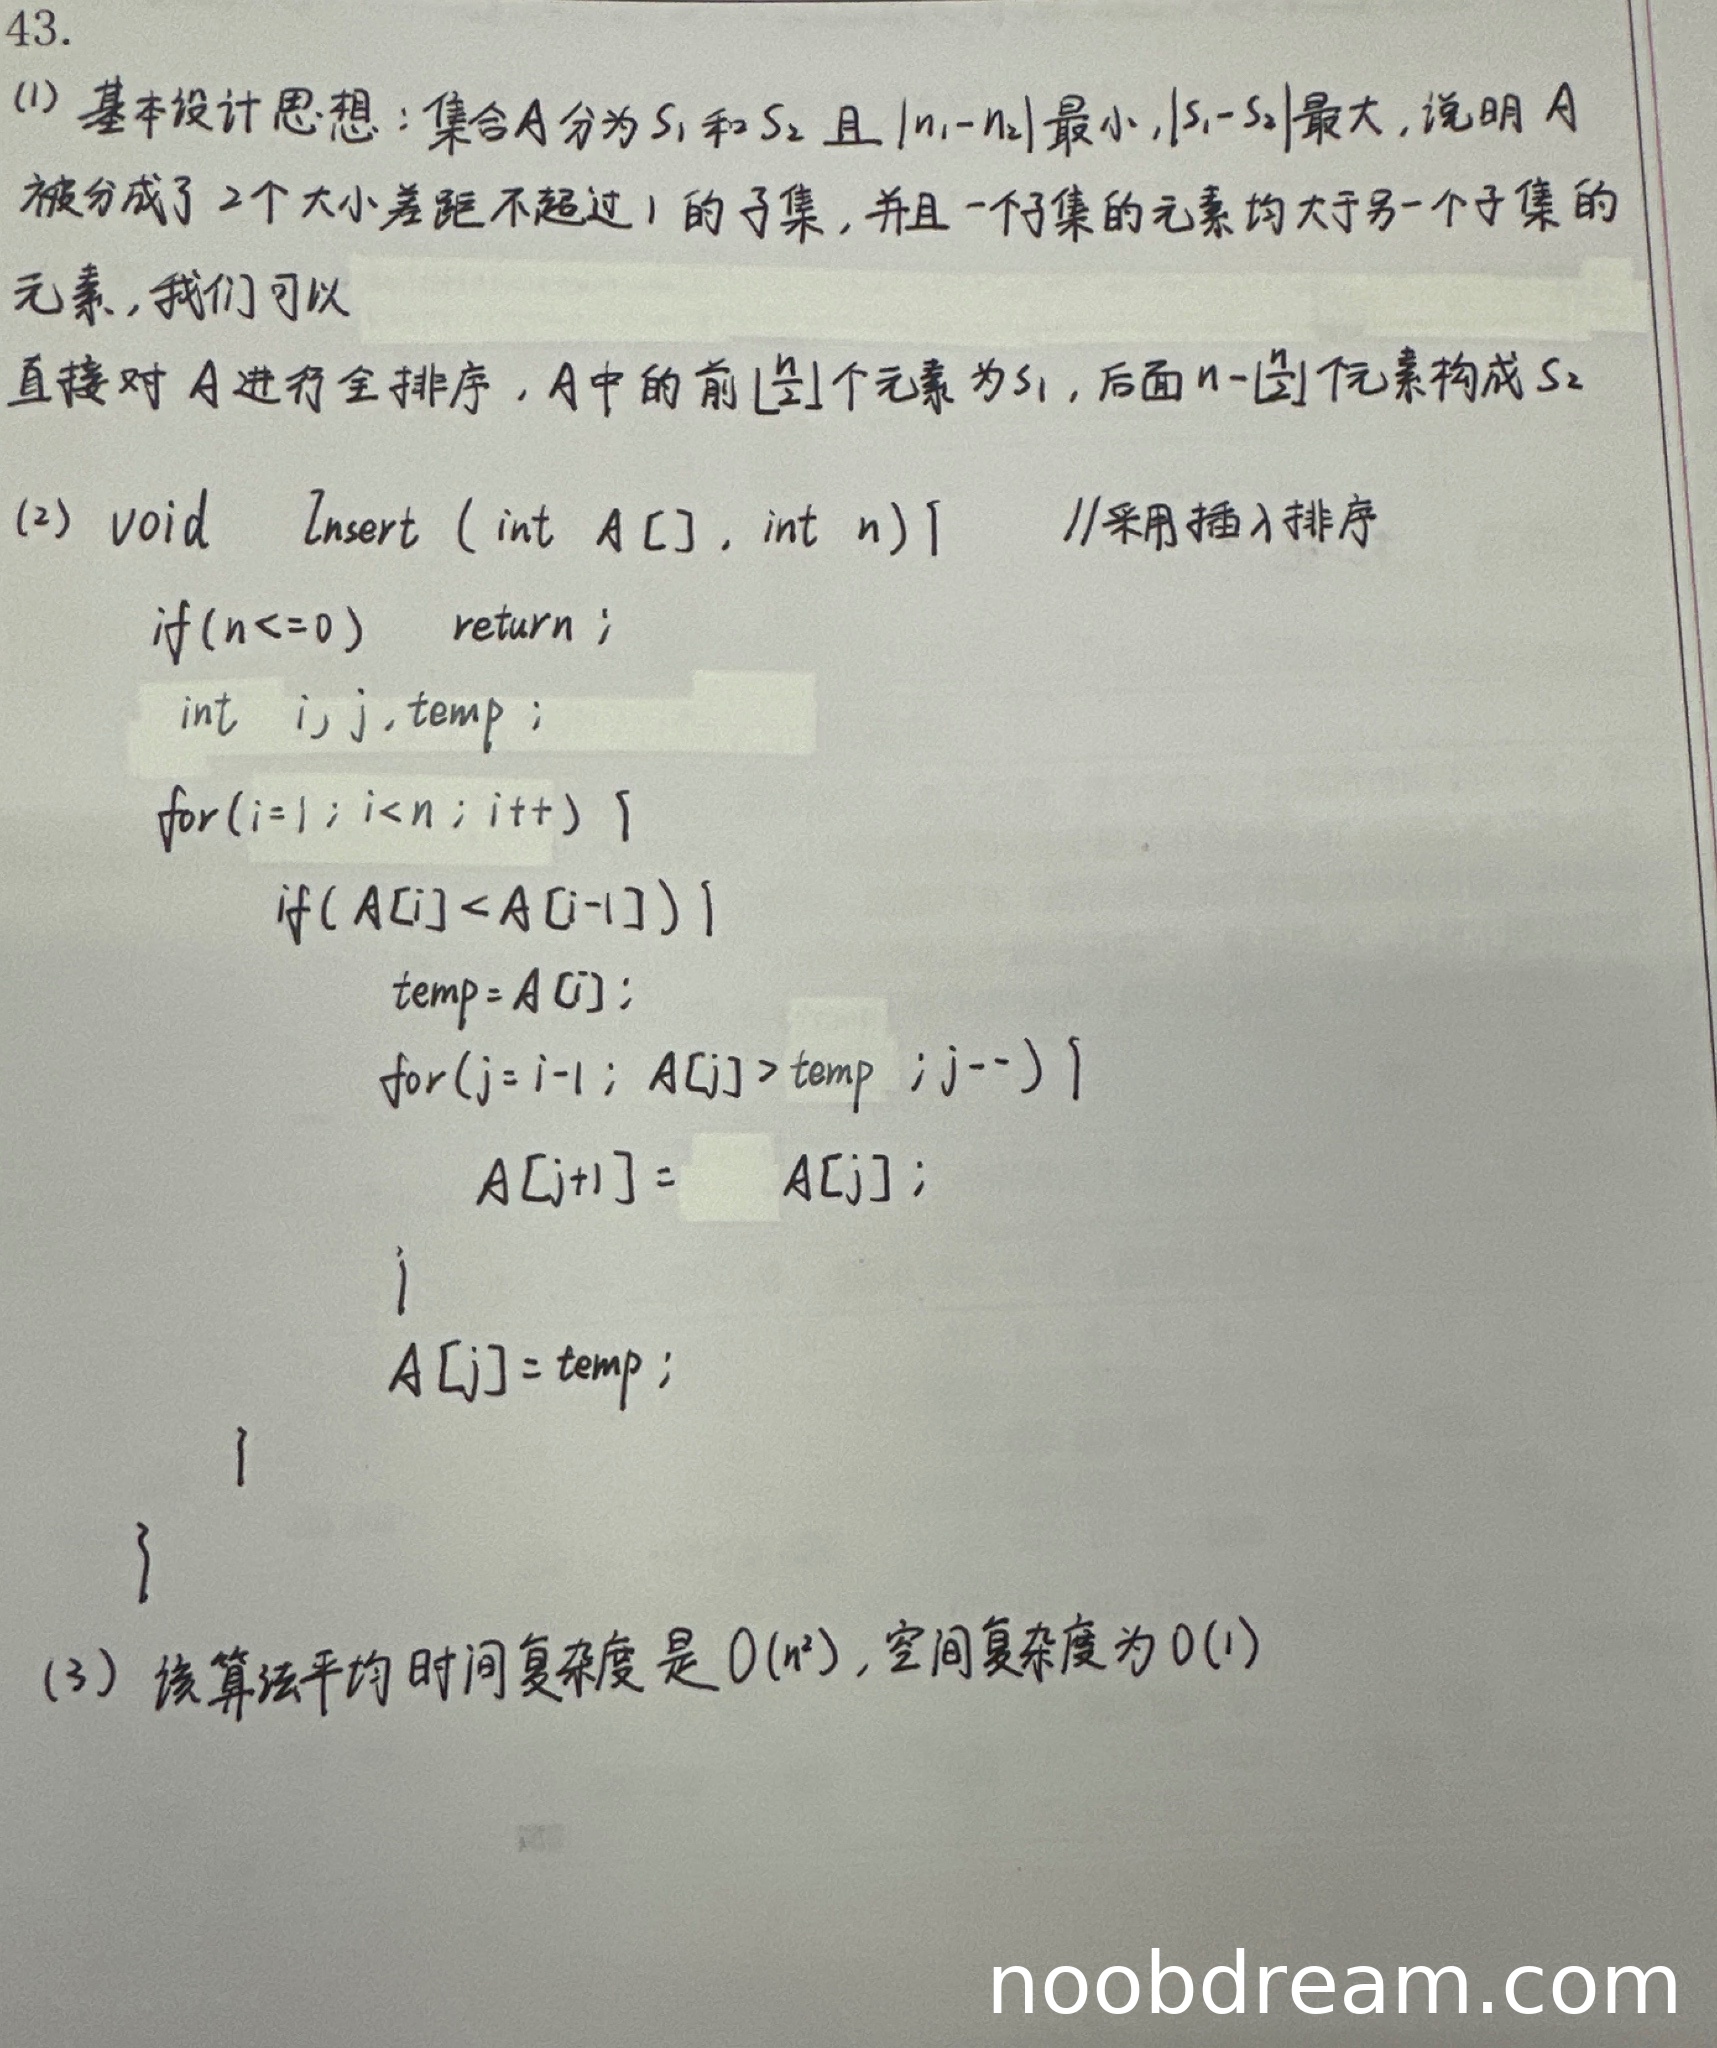 43.
(1) 基本设计思想：集合A分为S₁和S₂ 且|n₁-n₂|最小,|S₁-S₂|最大,说明A
被分成了2个大小差距不超过1的子集,并且一个子集的元素均大于另一个子集的
元素,我们可以
直接对A进行全排序,A中的前⌊n/2⌋个元素为S₁,后面n-⌊n/2⌋个元素构成S₂
(2) void Insert (int A[], int n){ //采用插入排序
if(n<=0) return;
int i,j,temp;
for(i=1;i<n;i++) {
if(A[i]<A[i-1]){
temp=A[i];
for(j=i-1; A[j]>temp ;j--){
A[j+1]= A[j];
}
A[j]=temp;
}
}
(3) 该算法平均时间复杂度是O(n²),空间复杂度为O(1)
noobdream.com